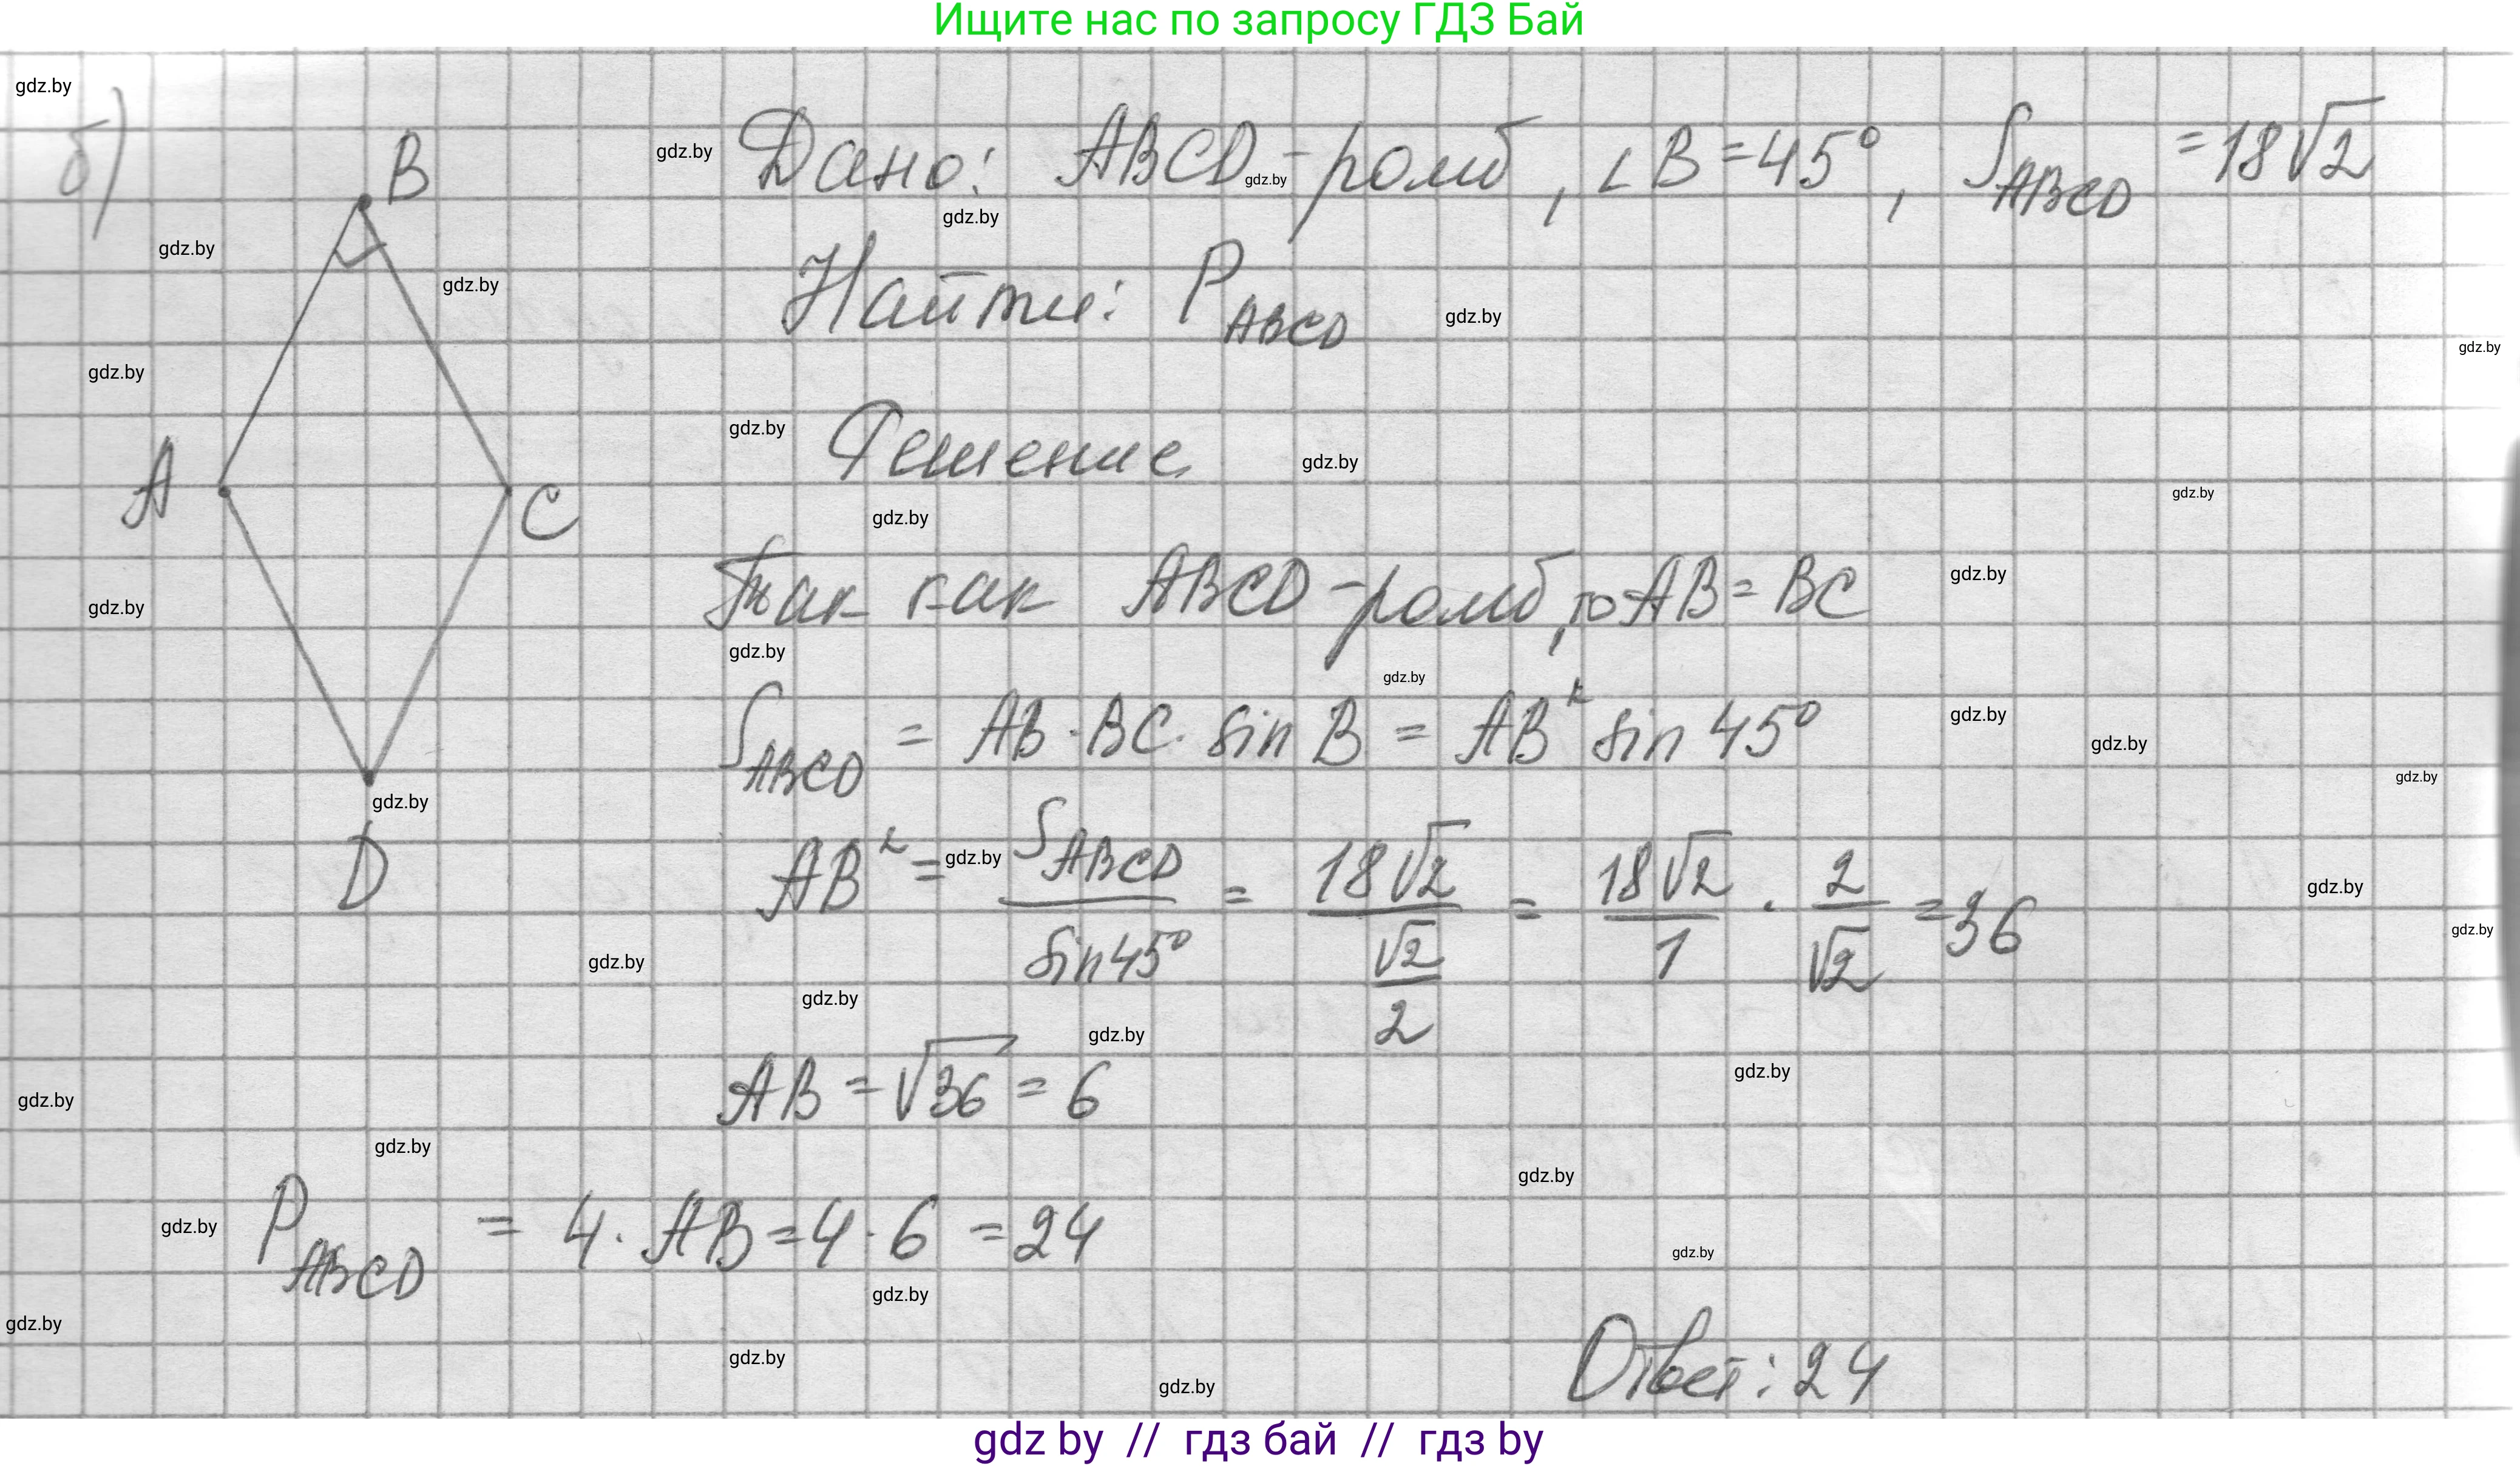 Ищите нас по запросу ГДЗ Бай
б)
Дано: ABCD - ромб, ∠B = 45°, S_ABCD = 18√2
Найти: P_ABCD
Решение
Так как ABCD - ромб, то AB = BC
S_ABCD = AB · BC · sin B = AB² sin 45°
AB² = S_ABCD / sin 45° = 18√2 / (√2 / 2) = 18√2 / 1 · 2 / √2 = 36
AB = √36 = 6
P_ABCD = 4 · AB = 4 · 6 = 24
Ответ: 24
B
A
C
D
gdz.by
gdz by // гдз бай // гдз by